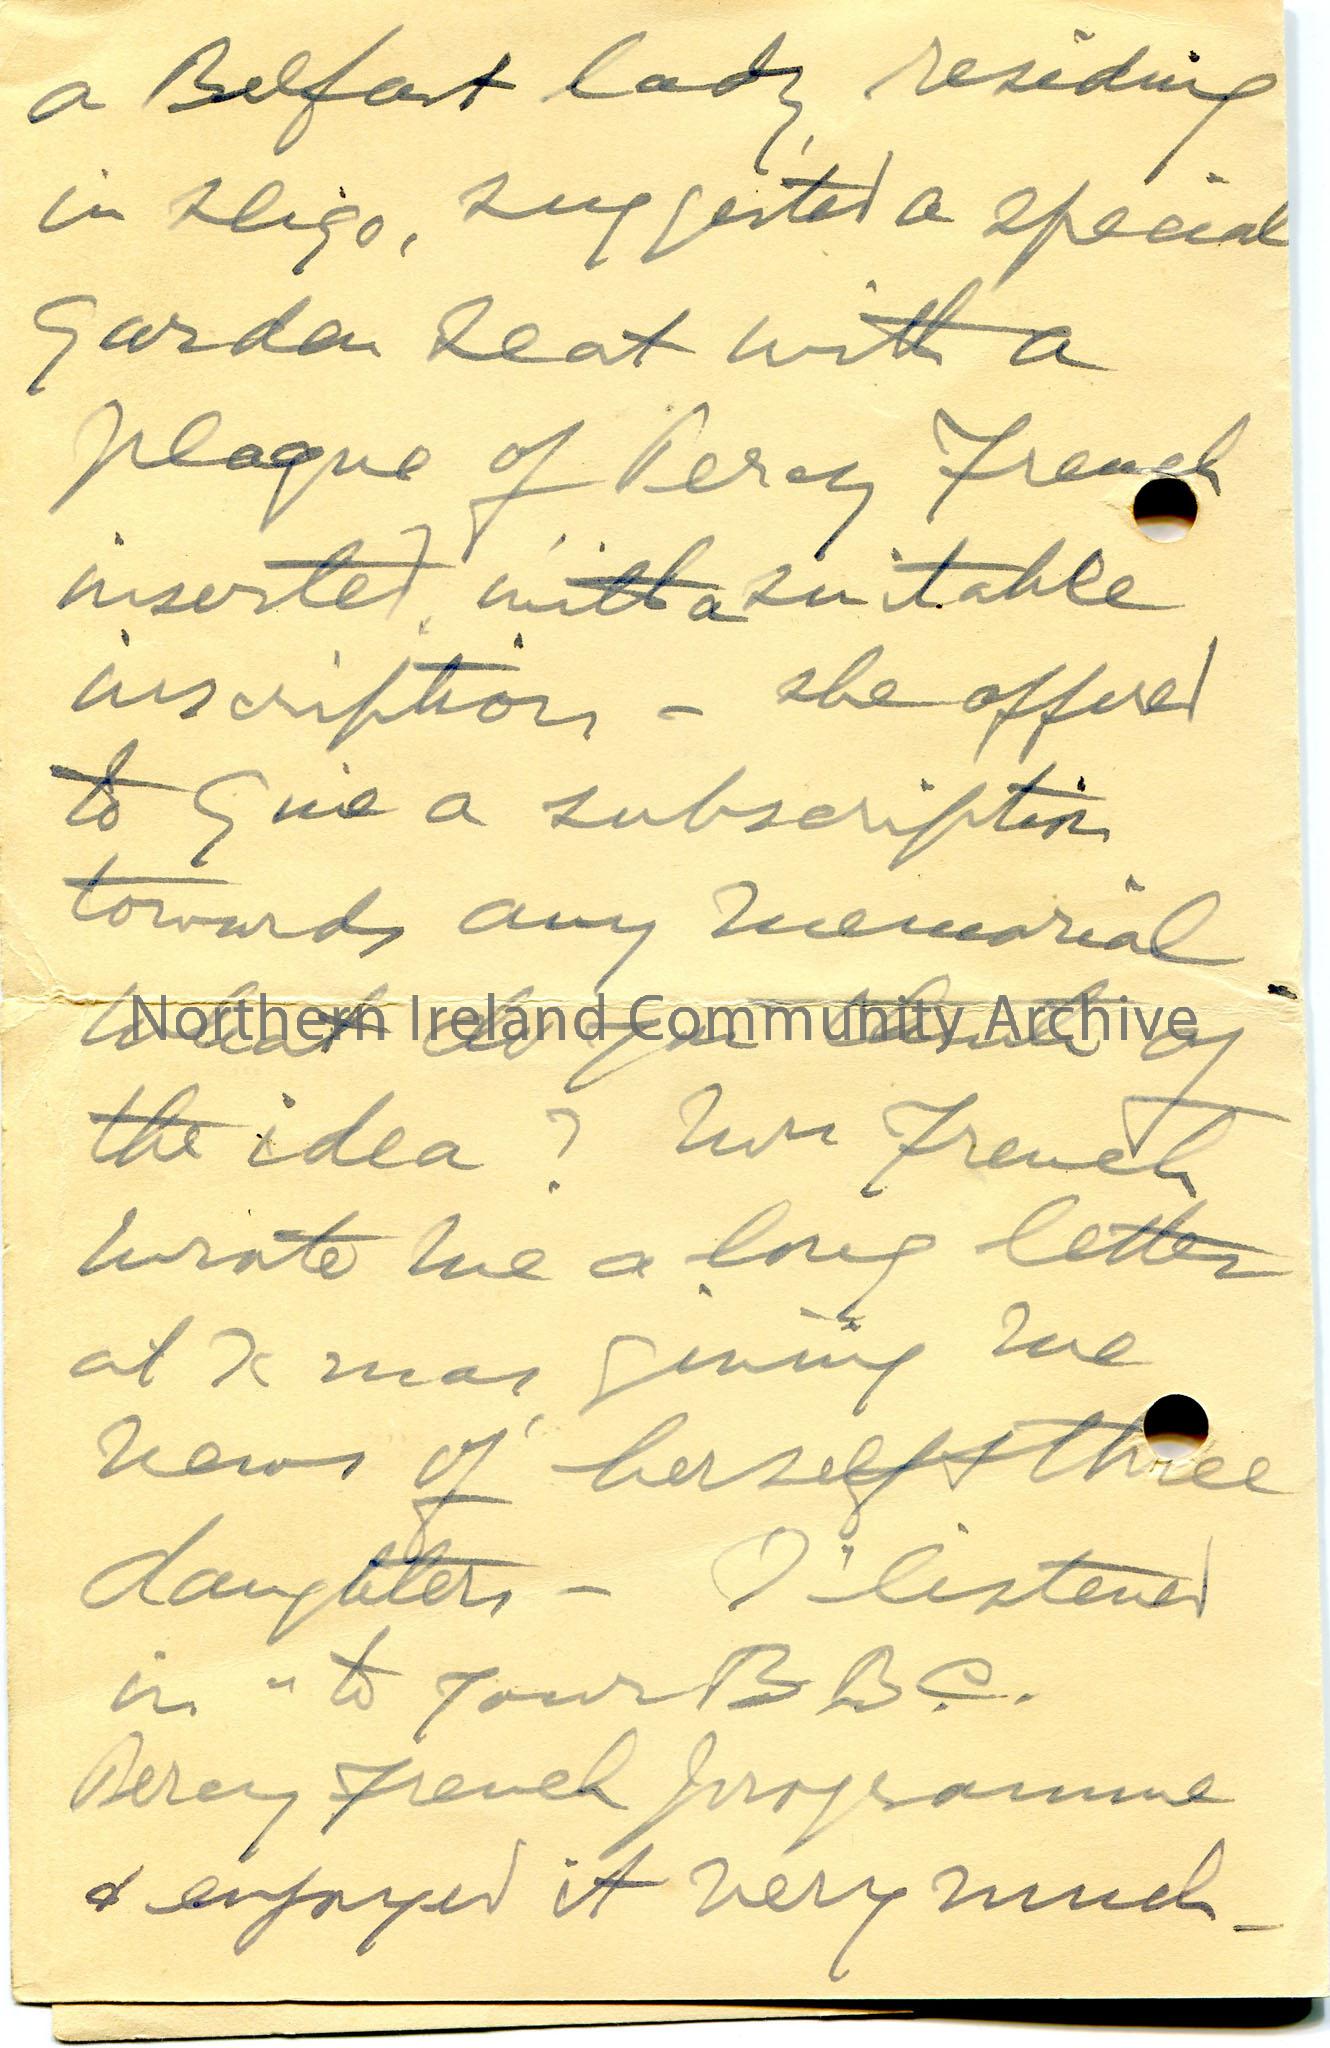 a Belfast lady, residing
in Sligo, suggested a special
Garden Seat with a
plaque of Percy French
inserted, with a suitable
inscription - she offered
to Give a subscription
towards any memorial
What do you think of
Northern Ireland Community Archive
the idea? Mrs French
wrote me a long letter
at Xmas, giving me
news of herself & three
daughters - I "listened
in" to your B B.C.
Percy French programme
& enjoyed it very much -